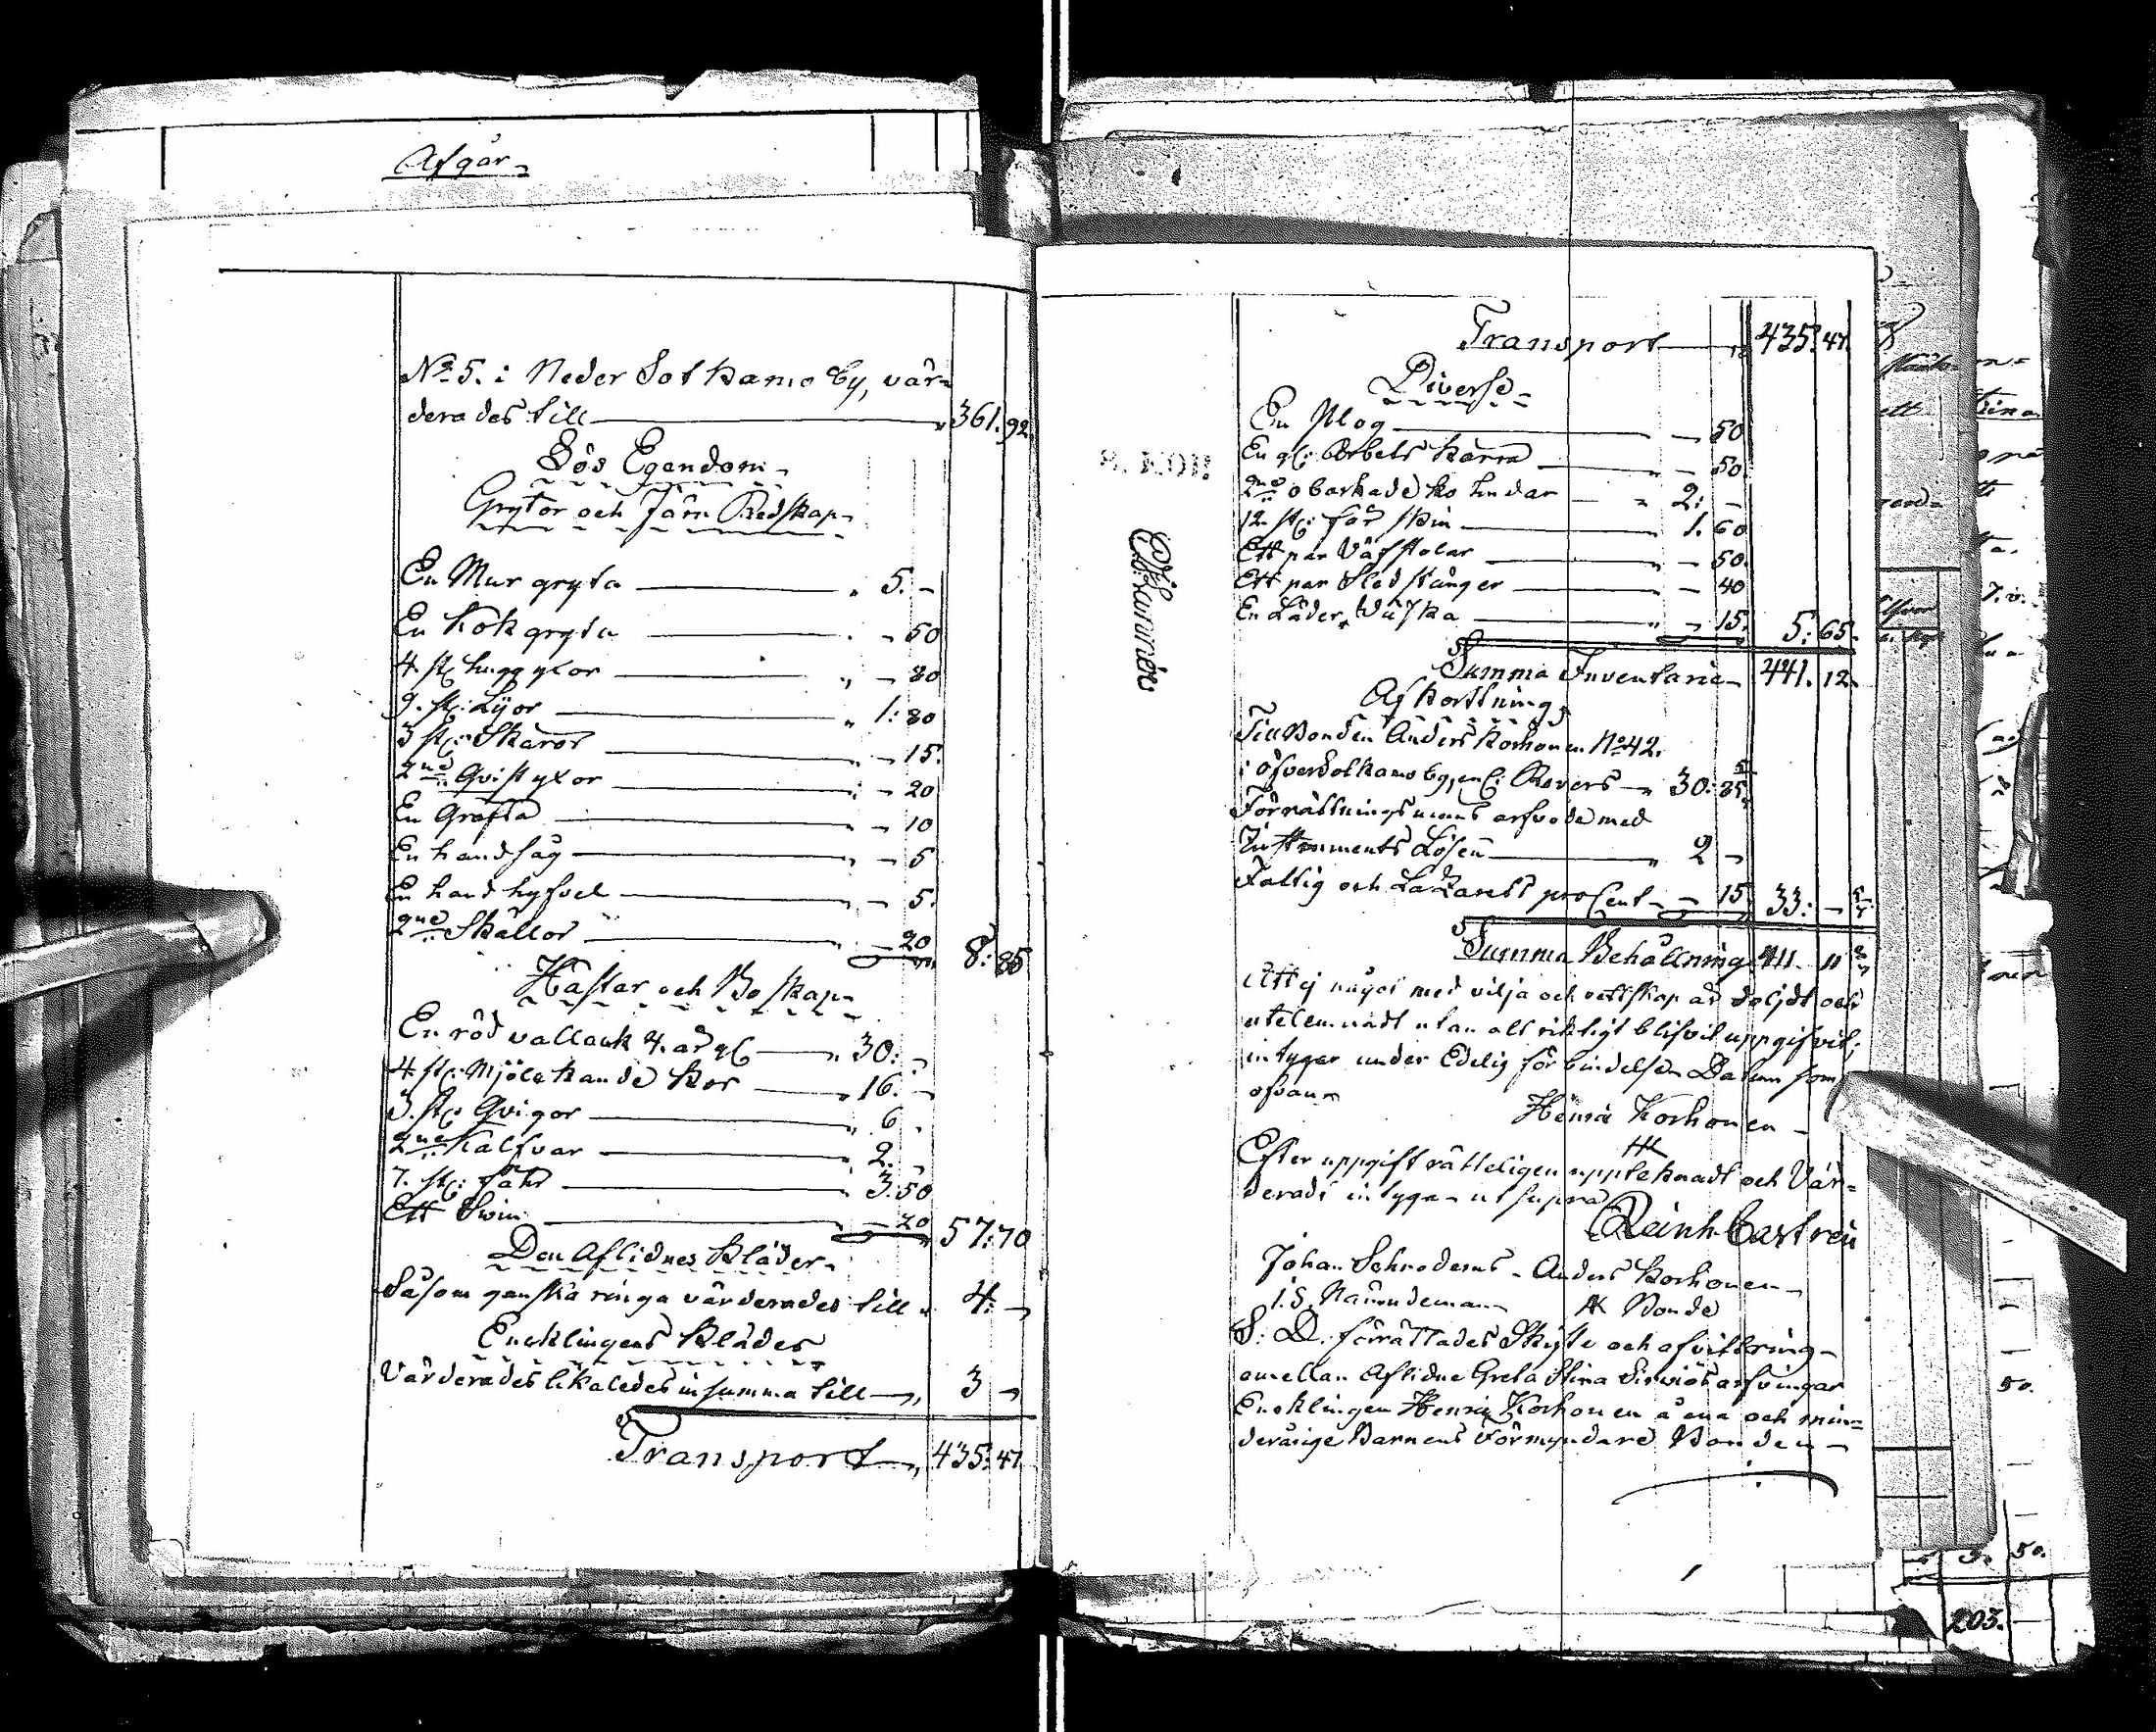 Afgår
No 5. i Neder Sotkamo by, vär-
derades till 361. 92.
Lös Egendom
Grytor och Järn Redskap
En Mur gryta 5. -
En Kok gryta - 50
4 st: hugg yxor - 80
9. st: Lijor 1: 80
3 st: Skäror - 15.
2ne Qvist yxor - 20
En Gräfta - 10
En handsåg - 5
En hand hyfvel - 5.
2ne Skällor - 20 8: 85
Hästar och Boskap
En röd vallack 4. år gl 30: -
4 st: Mjölckande Kor 16. -
3. st: Qvigor 6 -
2ne Kalfvar 2. -
7. st: Fåhr 3: 50
Ett Swin - 20 57: 70
Den Aflidnes Kläder
Såsom ganska ringa värderades till 4: -
Encklingens Kläder
Värderades likaledes in summa till 3 -
Transport 435: 47
Transport 435: 47.
Diverse
En Plog - 50
En gl: Arbets Kärra - 50.
2ne obarkade ko hudar 2: -
12 st: får skin 1. 60
Ett par Väfstolar - 50.
Ett par Slädstänger - 40
En Läder Väska - 15. 5: 65.
Summa Inventarie 441. 12.
Afkortning
Till Bonden Anders Korhonen No 42.
i öfverSotkamo by, en l: Revers 30: 85
Förrättningsmans arfvode med
Instruments Lösen 2 -
Fattig och Lazaretts proCent - 15 33: -
Summa Behållning 11
Att ej något med vilja och vettskap är doljdt och
utelemnadt utan allt riktigt blifvit uppgifvit;
intygar under Edelig förbindelse Datum som
ofvan
Henric Korhonen
HK
Efter uppgift rätteligen upptecknadt och Vär-
deradt intyga ut supra
Reinh. Castrén
Johan Schroderus Anders Korhonen
I.S. Nämndeman AK Bonde
S. D. förrättades Skifte och afvittring
emellan Aflidne Greta Stina Sirviös arfvingar
Encklingen Henric Korhonen å ena och min-
deråige Barnens Förmyndare Bonden
203.